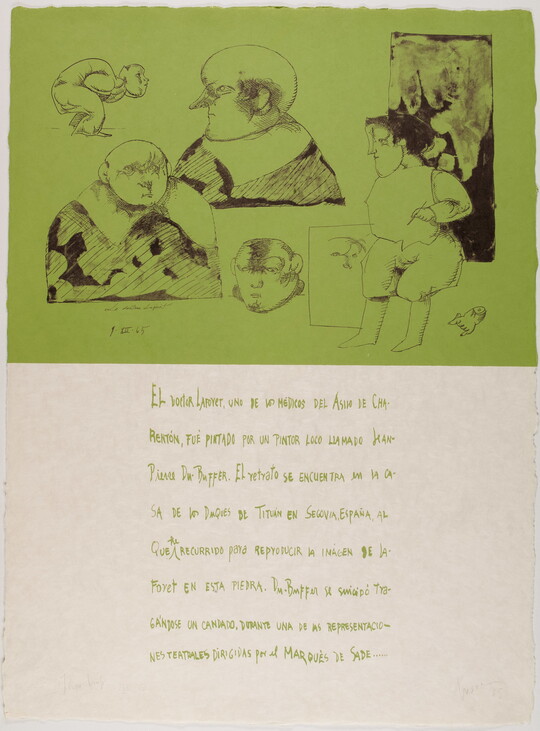 9 III 65
EL DOCTOR LAFOYET, UNO DE LOS MEDICOS DEL ASILO DE CHA-
RENTÓN, FUÉ PINTADO POR UN PINTOR LOCO LLAMADO JEAN-
PIERRE DU-BUFFER. El retrato SE ENCUENTRA en LA CA-
SA DE LOS DUQUES DE TITUÁN EN SEGOVIA, ESPAÑA, AL
QUE HE RECURRIDO para REPRODUCIR LA IMÁGEN DE LA-
FOYET EN ESTA PIEDRA. DU-BUFFER se suicidó TRA-
GÁNDOSE UN CANDADO, DURANTE UNA DE LAS REPRESENTACIO-
NES TEATRALES DIRIGIDAS por el MARQUÈS DE SADE.....